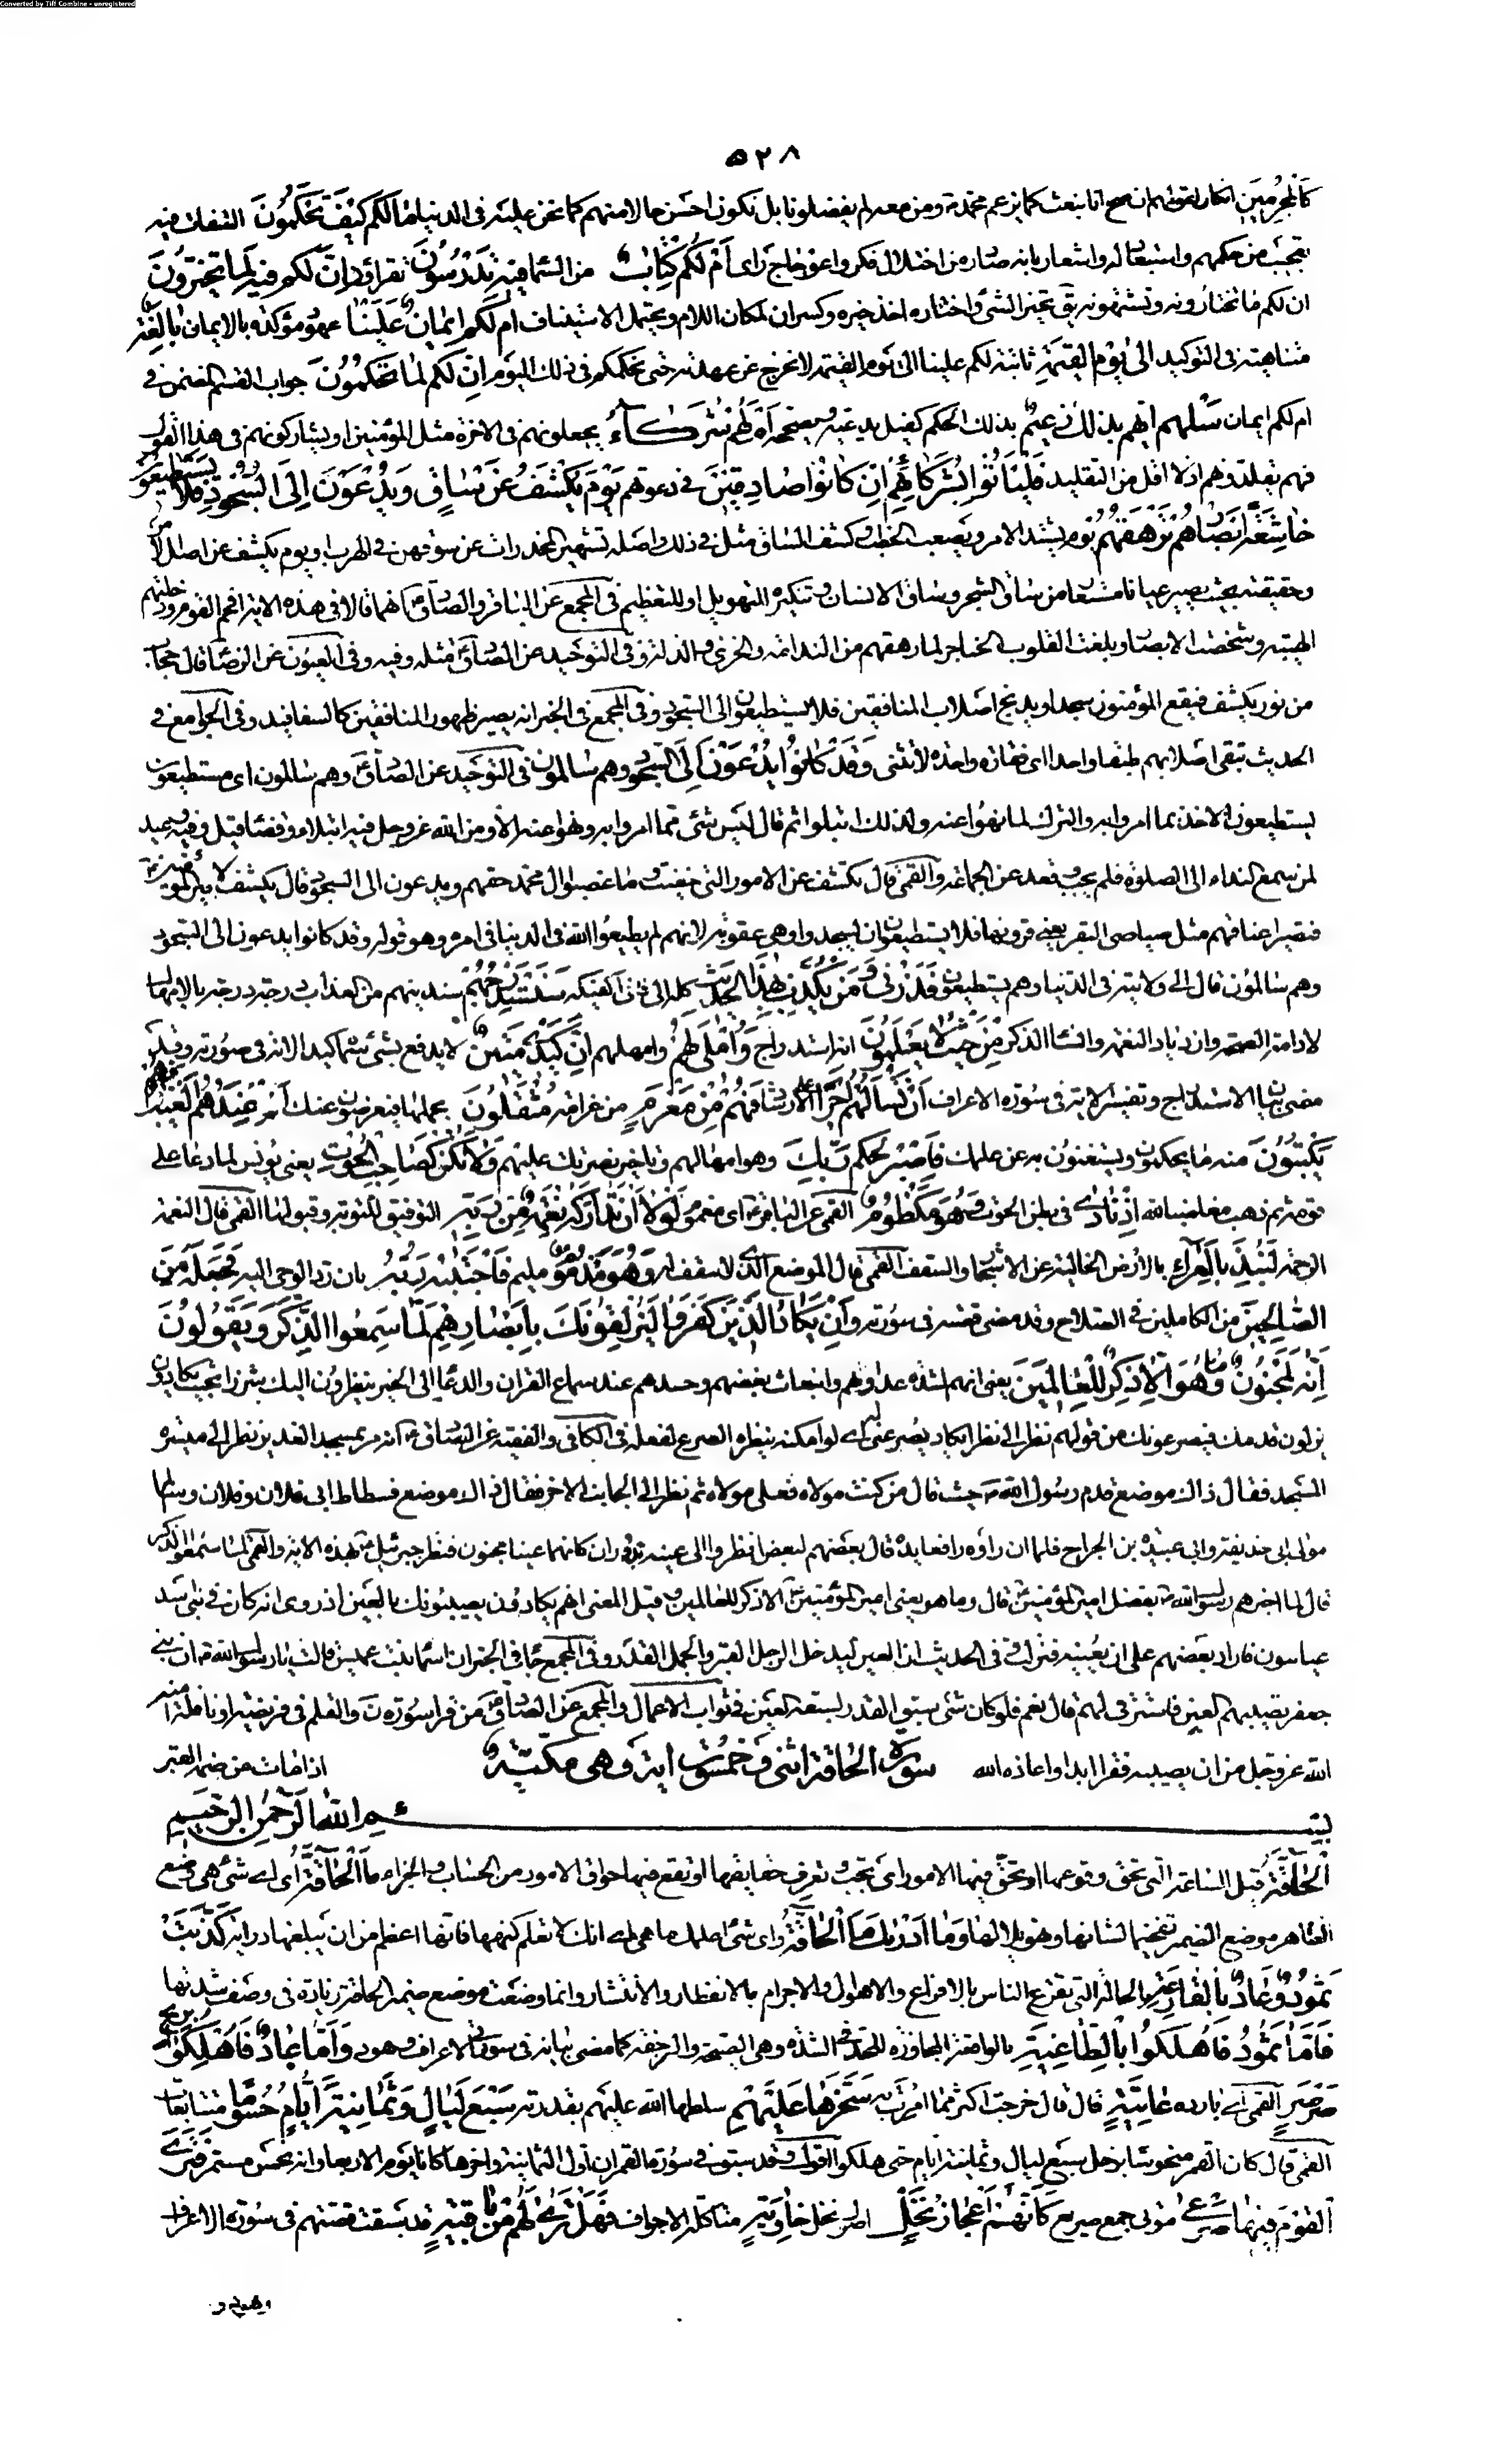 Converted by Tiff Combine - unregistered
٥٢٨
كَالْمُجْرِمِينَ انكار لقولهم ان صح انا نبعث كما يزعم محمد ص ومن معه لم يفضلونا بل نكون احسن حالا منهم كما نحن عليه فى الدنيا مٰا لَكُمْ كَيْفَ تَحْكُمُونَ التفات فيه
تعجب من حكمهم واستبعاد له واشعار بانه صادر من اختلال فكر واعوجاج راى أَمْ لَكُمْ كِتٰابٌ من السّماء فِيهِ تَدْرُسُونَ تقرأون إِنَّ لَكُمْ فِيهِ لَمٰا تَخَيَّرُونَ
ان لكم ما تختارونه وتشتهونه يق تخير الشئ واختاره اخذ خيره وكسر ان لمكان اللام ويحتمل الاستيناف أَمْ لَكُمْ أَيْمٰانٌ عَلَيْنٰا عهود مؤكدة بالايمان بٰالِغَةٌ
متناهية فى التوكيد إِلىٰ يَوْمِ الْقِيٰمَةِ ثابتة لكم علينا الى يوم القيمة لا نخرج عن عهدته حتى نحكمكم فى ذلك اليوم إِنَّ لَكُمْ لَمٰا تَحْكُمُونَ جواب القسم المضمن فى
ام لكم ايمان سَلْهُمْ أَيُّهُمْ بِذٰلِكَ زَعِيمٌ بذلك الحكم كفيل يدعيه ويصححه أَمْ لَهُمْ شُرَكٰاءُ يجعلونهم فى الاخرة مثل المؤمنين او يشاركونهم فى هذا القول
فهم يقلدونهم اذ لا اقل من التقليد فَلْيَأْتُوا بِشُرَكٰائِهِمْ إِنْ كٰانُوا صٰادِقِينَ فى دعوهم يَوْمَ يُكْشَفُ عَنْ سٰاقٍ وَيُدْعَوْنَ إِلَى السُّجُودِ فَلٰا يَسْتَطِيعُونَ
خٰاشِعَةً أَبْصٰارُهُمْ تَرْهَقُهُمْ يوم يشتد الامر ويصعب الخطب وكشف الساق مثل فى ذلك واصله تشمير المخدرات عن سوقهن فى الهرب او يوم يكشف عن اصل الامر
وحقيقته بحيث يصير عيانا مستعار من ساق الشجر وساق الانسان وتنكيره للتهويل او للتعظيم فى المجمع عن الباقر والصادق ع انهما قالا فى هذه الاية افحم القوم ودخلتهم
الهيبة وشخصت الابصار وبلغت القلوب الحناجر لما رهقهم من الندامة والخزى والذلة وفى التوحيد عن الصادق ع مثله وفيه وفى العيون عن الرضا ع قال حجاب
من نور يكشف فيقع المؤمنون سجدا ويدبج اصلاب المنافقين فلا يستطيعون الى السجود وفى المجمع فى الخبر انه يصير ظهور المنافقين كالسفافيد وفى الجوامع فى
الحديث تبقى اصلابهم طبقا واحدا اى فقارة واحدة لا تنثنى وَقَدْ كٰانُوا يُدْعَوْنَ إِلَى السُّجُودِ وَهُمْ سٰالِمُونَ فى التوحيد عن الصادق ع وهم سالمون اى مستطيعون
يستطيعون الاخذ بما امروا به والترك لما نهوا عنه ولذلك ابتلوا ثم قال ليس شئ مما امروا به ونهوا عنه الا ومن الله عز وجل فيه ابتلاء وقضاء قيل وفيه وعيد
لمن سمع النداء الى الصلوة فلم يجب وقعد عن الجماعة والقمى قال يكشف عن الامور التى خفيت وما غصبوا ال محمد حقهم ويدعون الى السجود قال يكشف لامير المؤمنين ع
فتصير اعناقهم مثل صياصى البقر يعنى قرونها فلا يستطيعون ان يسجدوا وهى عقوبة لانهم لم يطيعوا الله فى الدنيا فى امره وهو قوله وقد كانوا يدعون الى السجود
وهم سالمون قال الى ولايته فى الدنيا وهم يستطيعون فَذَرْنِي وَمَنْ يُكَذِّبُ بِهٰذَا الْحَدِيثِ كله الى فانى اكفيكه سَنَسْتَدْرِجُهُمْ سندنيهم من العذاب درجة درجة بالامهال
لادامة الصحة وازدياد النعمة وانساء الذكر مِنْ حَيْثُ لٰا يَعْلَمُونَ انه استدراج وَأُمْلِي لَهُمْ وامهلهم إِنَّ كَيْدِي مَتِينٌ لا يدفع بشئ سماه كيدا لانه فى صورته وقد
مضى بيان الاستدراج وتفسير الاية فى سورة الاعراف أَمْ تَسْأَلُهُمْ أَجْراً على الارشاد فَهُمْ مِنْ مَغْرَمٍ من غرامة مُثْقَلُونَ بحملها فيعرضون عنك أَمْ عِنْدَهُمُ الْغَيْبُ فَهُمْ
يَكْتُبُونَ منه ما يحكمون ويستغنون به عن علمك فَاصْبِرْ لِحُكْمِ رَبِّكَ وهو امهالهم وتاخير نصرتك عليهم وَلٰا تَكُنْ كَصٰاحِبِ الْحُوتِ يعنى يونس لما دعا على
قومه ثم ذهب مغاضبا لله إِذْ نٰادىٰ فى بطن الحوت وَهُوَ مَكْظُومٌ القمى عن الباقر ع اى مغموم لَوْلٰا أَنْ تَدٰارَكَهُ نِعْمَةٌ مِنْ رَبِّهِ التوفيق للتوبة وقبولها القمى قال النعمة
الرحمة لَنُبِذَ بِالْعَرٰاءِ بالارض الخالية عن الاشجار والسقف القمى قال الموضع الذى لا سقف له وَهُوَ مَذْمُومٌ مليم فَاجْتَبٰاهُ رَبُّهُ بان رد الوحى اليه فَجَعَلَهُ مِنَ
الصّٰالِحِينَ من الكاملين فى الصلاح وقد مضى قصته فى سورته وَإِنْ يَكٰادُ الَّذِينَ كَفَرُوا لَيُزْلِقُونَكَ بِأَبْصٰارِهِمْ لَمّٰا سَمِعُوا الذِّكْرَ وَيَقُولُونَ
إِنَّهُ لَمَجْنُونٌ وَمٰا هُوَ إِلّٰا ذِكْرٌ لِلْعٰالَمِينَ يعنى انهم لشدة عداوتهم وانبعاث بغضهم وحسدهم عند سماع القران والدعاء الى الخير ينظرون اليك شزرا بحيث يكادون
يزلون قدمك فيصرعونك من قولهم نظر الى نظرا يكاد يصرعنى اى لو امكنه بنظره الصرع لفعله فى الكافى والفقيه عن الصادق ع انه مر بمسجد الغدير فنظر الى ميسرة
المسجد فقال ذاك موضع قدم رسول الله ص حيث قال من كنت مولاه فعلى مولاه ثم نظر الى الجانب الاخر فقال ذاك موضع فسطاط ابى فلان وفلان وسالم
مولى ابى حذيفة وابى عبيدة بن الجراح فلما ان راوه رافعا يده قال بعضهم لبعض انظروا الى عينيه تدوران كانهما عينا مجنون فنزل جبرئيل ع بهذه الاية والقمى لما سمعوا الذكر
قال لما اخبرهم رسول الله ص بفضل امير المؤمنين ع قال وما هو يعنى امير المؤمنين ع الا ذكر للعالمين وقيل المعنى انهم يكادون يصيبونك بالعين اذ روى انه كان فى بنى اسد
عيانون فاراد بعضهم على ان يعينه فنزلت وفى الحديث ان العين ليدخل الرجل القبر والجمل القدر وفى المجمع جاء فى الخبر ان اسماء بنت عميس قالت يا رسول الله ص ان بنى
جعفر تصيبهم العين فاسترقى لهم قال نعم فلو كان شئ يسبق القدر لسبقه العين فى ثواب الاعمال والمجمع عن الصادق ع من قرا سورة ن والقلم فى فريضة او نافلة امنه
الله عز وجل من ان يصيبه فقر ابدا واعاذه الله سورة الحاقة اثنى وخمسون اية وهى مكية اذا مات من ضمة القبر
بِسْمِ اللهِ الرَّحْمٰنِ الرَّحِيمِ
الْحٰاقَّةُ قيل الساعة التى تحق وقوعها او تحق فيها الامور اى تجب وتعرف حقايقها او تقع فيها حواق الامور من الحساب والجزاء مَا الْحٰاقَّةُ اى اى شئ هى وضع
الظاهر موضع الضمير تفخيما لشانها وتهويلا لها وَمٰا أَدْرٰاكَ مَا الْحٰاقَّةُ واى شئ اعلمك ما هى اى انك لا تعلم كنهها فانها اعظم من ان يبلغها دراية كَذَّبَتْ
ثَمُودُ وَعٰادٌ بِالْقٰارِعَةِ بالحالة التى تقرع الناس بالافزاع والاهوال والاجرام بالانفطار والانتشار وانما وضعت موضع ضمير الحاقة زيادة فى وصف شدتها
فَأَمّٰا ثَمُودُ فَأُهْلِكُوا بِالطّٰاغِيَةِ بالواقعة المجاوزة للحد فى الشدة وهى الصيحة والرجفة كما مضى بيانه فى سورتى الاعراف وهود وَأَمّٰا عٰادٌ فَأُهْلِكُوا بِرِيحٍ
صَرْصَرٍ القمى اى باردة عٰاتِيَةٍ قال قال خرجت اكثر مما امرت به سَخَّرَهٰا عَلَيْهِمْ سلطها الله عليهم بقدرته سَبْعَ لَيٰالٍ وَثَمٰانِيَةَ أَيّٰامٍ حُسُوماً متتابعات
القمى قال كان القمر منحوسا بزحل سبع ليال وثمانية ايام حتى هلكوا اقول وقد سبق فى سورة القمر ان اول الثمانية واخرها كانا يوم الاربعاء وانه نحس مستمر فَتَرَى
الْقَوْمَ فِيهٰا صَرْعىٰ موتى جمع صريع كَأَنَّهُمْ أَعْجٰازُ نَخْلٍ اصول نخل خٰاوِيَةٍ متاكلة الاجواف فَهَلْ تَرىٰ لَهُمْ مِنْ بٰاقِيَةٍ قد سبقت قصتهم فى سورة الاعراف
وهود و